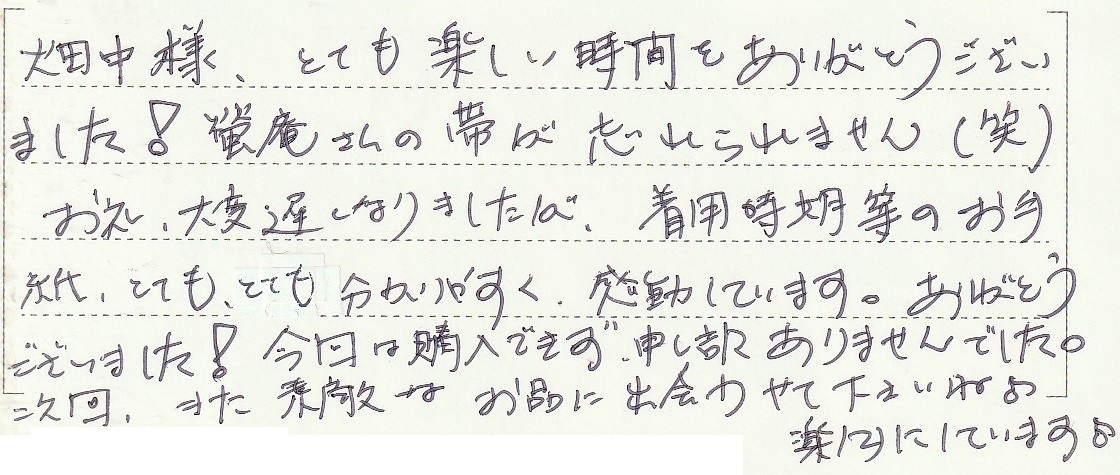 畑中様、とても楽しい時間をありがとうござい
ました！蠻庵さんの帯が忘れられません(笑)
お礼、大変遅くなりましたが、着用時期等のお手
紙、とても、とても分かりやすく、感動しています。ありがとう
ございました！今回は購入できず、申し訳ありませんでした。
次回、また素敵なお品に出会わせて下さいね♪
楽しみにしています♪